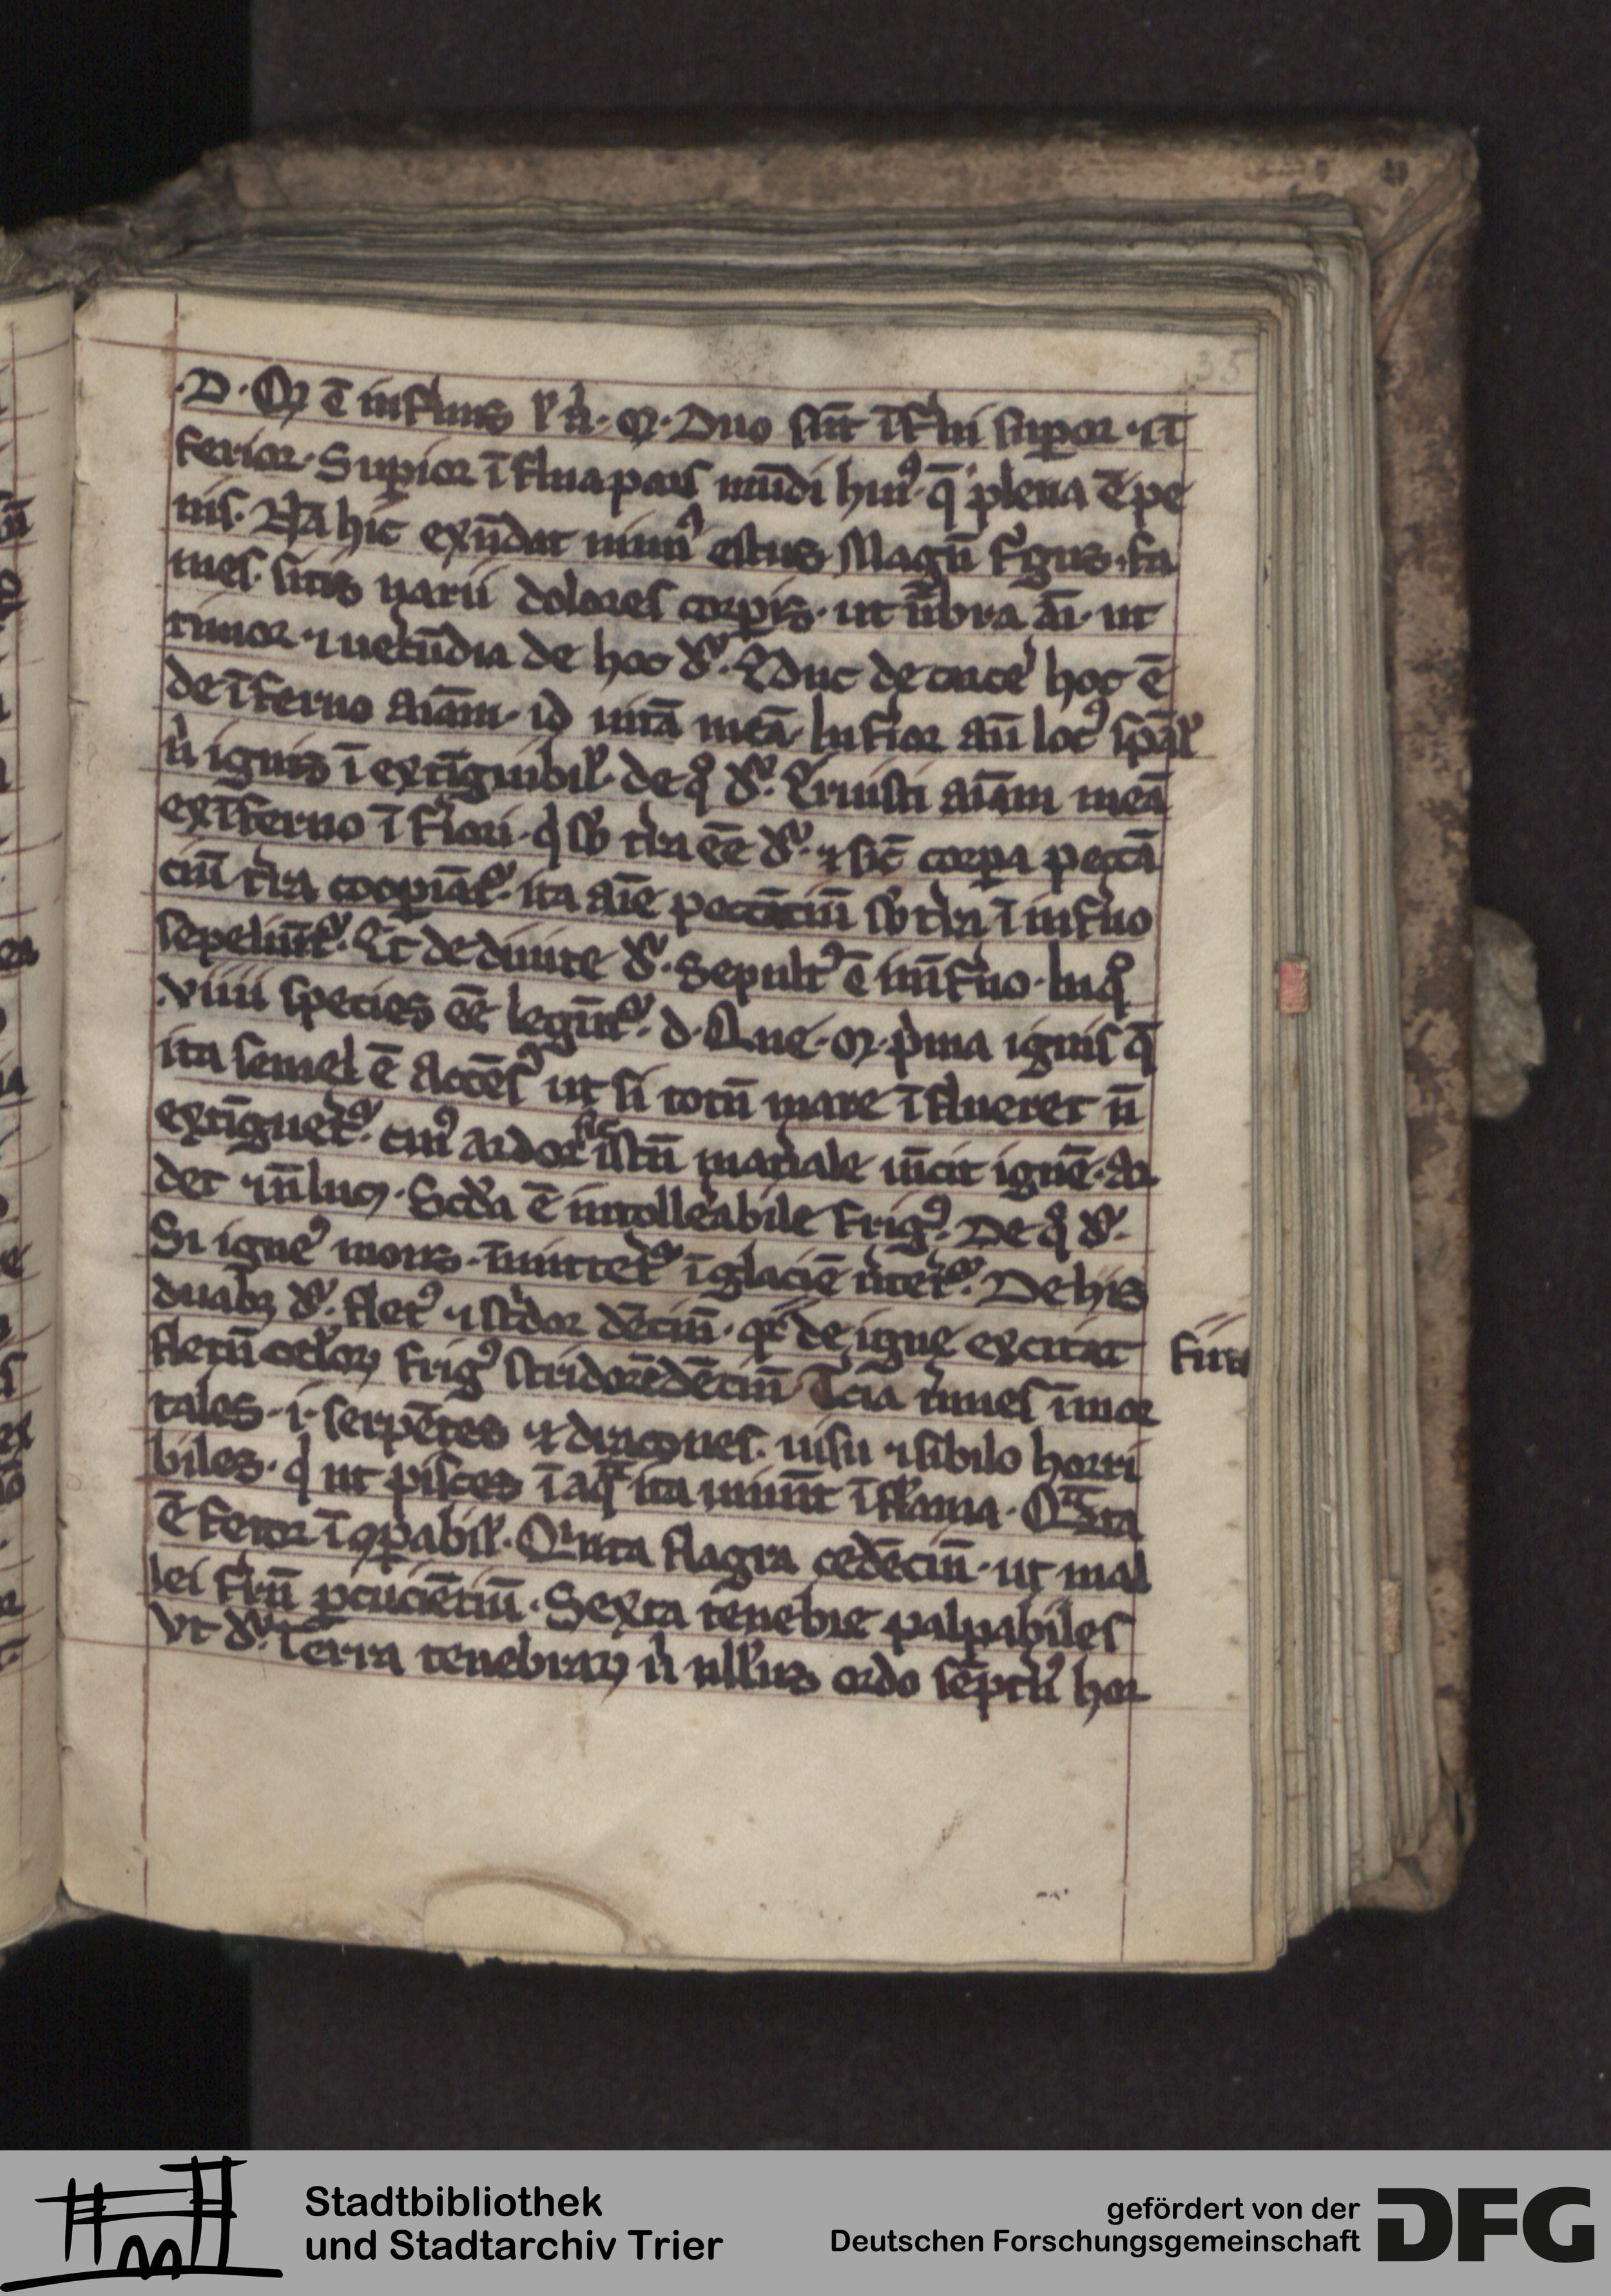 35
.D. Qͥ ē infͥnus ł ń. M. Duo sūt īfͥni supior ⁊ ī
ferior. Supior ī fͥma pars mūdi huiꝰ. q̄ plena ē pe
nis. Nā hic exūdat nimiꝰ estus Magn̄ fͥgus. fa
mes. sitis uarii dolores corpis. ut ūbera aī. ut
timor ⁊ uerecūdia de hoc dꝛ. Educ de carcere hoc ē
de īferno aīam. id uitā meā. Inferior aū locꝰ spāł
ń ignis ī extīguibił. de qͦ dꝛ. Eruisti aīam meā
ex īferno ī feriori. qͥ sb tͥra eē dꝛ. ⁊ sic̄ corpa peccā
ciū tͥra coopiāt᷑. ita aīe peccāciū sb tͥra ī infͥno
sepeliūt᷑. Et de diuite dꝛ. Sepultꝰ ē in īfͥno. In qͦ
.viiii species eē legūt᷑. d. Que. M. pͥma ignis q̄
ita semel ē accēsꝰ ut si totū mare ī flueret n̄
extīgueret᷑. cuiꝰ ardor sic istū materiale uīcit ignē. ar
det ⁊ n̄ lucꝫ. Scd́a ē intollerabile frigꝰ. De qͦ dꝛ.
Si igneꝰ mons. īmitteret᷑ ī glaciē ụ̄teret᷑. De his
duabꝫ dꝛ. fletꝰ ⁊ stͥdor dēciū. qꝛ de igne excitat
fletū oculoꝝ frigꝰ stridorē dēciū Tcia ụ̄mes īmor
tales .i. serpētes ⁊ dracones. uisu ⁊ sibilo horri
biles. qͥ ut pisces ī aqͣ ita uiuūt ī flāma. Qͣrta
ē fetor ī ꝯpabił. Qͥnta flagra cedēciū. ut mal
lei ferrū pcuciētiū. Sexta tenebre palpabiles
Vt dꝛ. Terra tenebraꝝ ń ullꝰus ordo sēptͥnꝰ hor
Stadtbibliothek
und Stadtarchiv Trier
gefördert von der
Deutschen Forschungsgemeinschaft
DFG